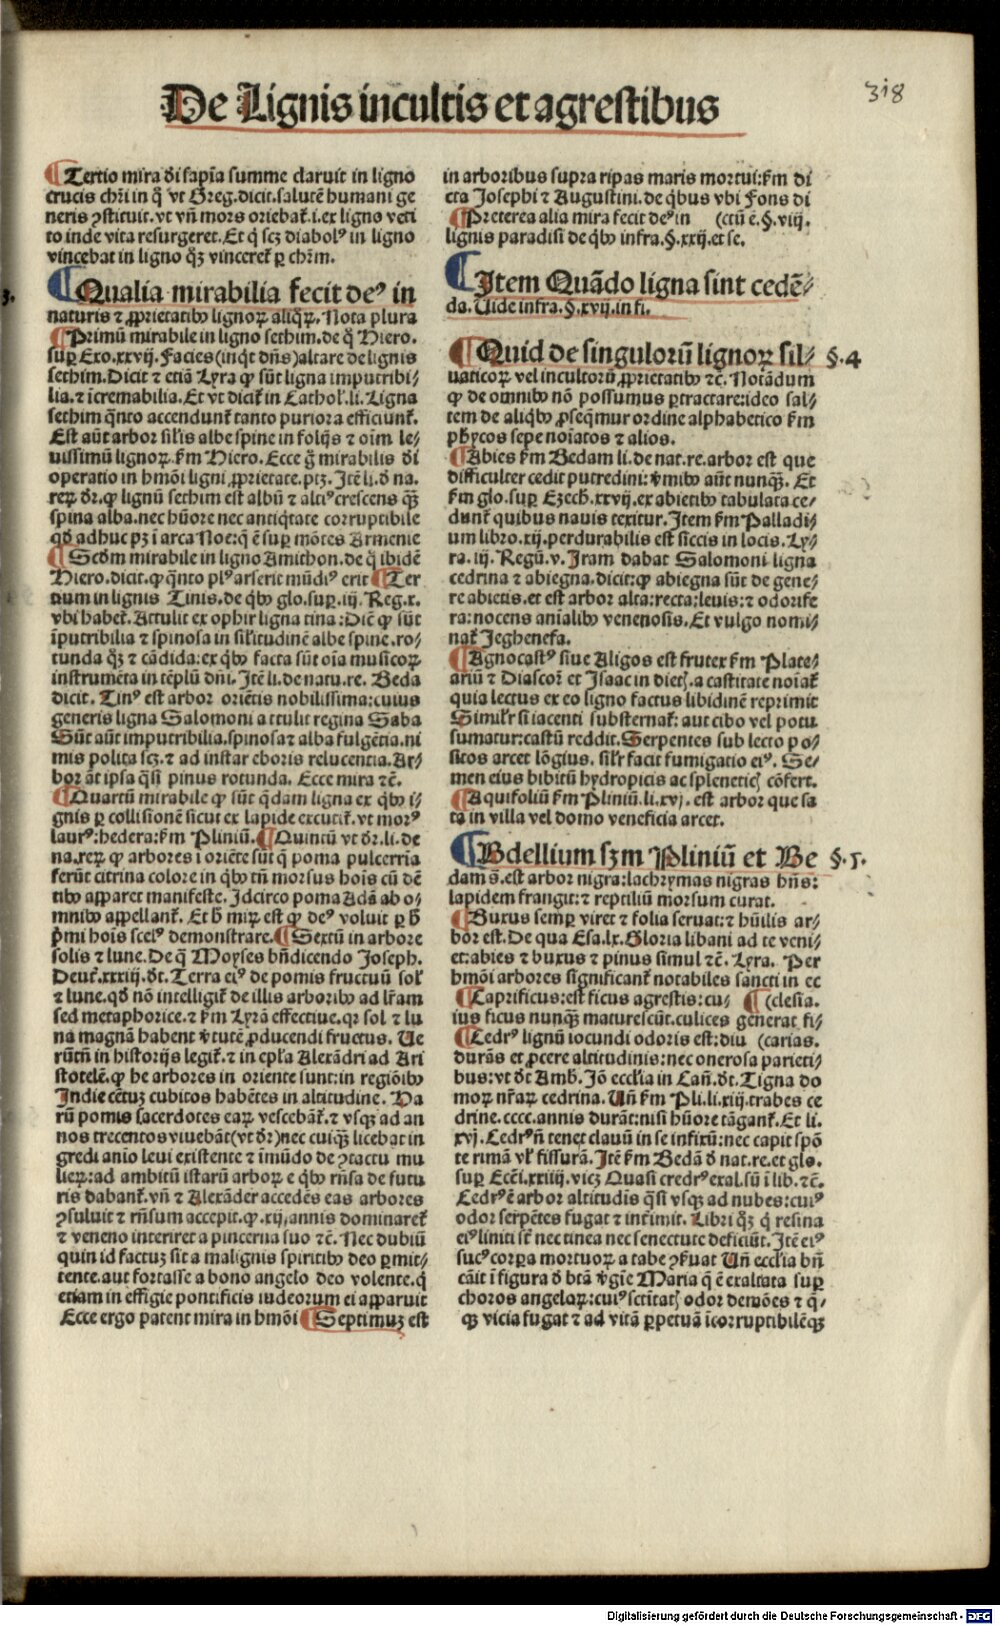 De Lignis incultis et agrestibus
318
¶Tertio mira di sapīa summe claruit in ligno
crucis chr̄i in q̄ vt Greg. dicit. salutē humani ge
neris ꝯstituit. vt vn̄ mors oriebat᷑. i. ex ligno veti
to inde vita resurgeret. Et q̇ scꝫ diabolꝰ in ligno
vincebat in ligno q̄ꝫ vinceret᷑ ꝑ chr̄m.
3.
¶Qualia mirabilia fecit deꝰ in
naturis ⁊ ꝓprietatibꝰ lignoꝝ aliq̄ꝝ. Nota plura
¶Primū mirabile in ligno sethim. de q̄ Hiero.
suꝑ Exo. xxvij. Facies (inq̇t dn̄s) altare de lignis
sethim. Dicit ⁊ etiā Lyra ꝙ sūt ligna imputribi⸗
lia. ⁊ īcremabilia. Et vt dicit᷑ in Cathol'. li. Ligna
sethim q̄nto accendunt᷑ tanto puriora efficiunt᷑.
Est aūt arbor sil'is albe spine in folijs ⁊ oīm le⸗
uissimū lignoꝝ. ẜm Hiero. Ecce g̊ mirabilis di
operatio in hmōi ligni ꝓprietate. ptꝫ. Itē li. d̄ na.
reꝝ dr̄. ꝙ lignū sethim est albū ⁊ altiꝰ crescens q̄ꝫ
spina alba. nec hūore nec antiq̇tate corruptibile
qd̄ adhuc pꝫ ī arca Noe: q̄ ē suꝑ mōtes Armenie
¶Scd̄m mirabile in ligno Amithon. de q̄ ibidē
Hiero. dicit. ꝙ q̄nto plꝰ arserit mūdiꝰ erit ¶Ter
tium in lignis Tinis. de q̇bꝰ glo. suꝑ. iij. Reg. x.
vbi habet᷑. Attulit ex ophir ligna tina: Dic̄ ꝙ sūt
īputribilia ⁊ spinosa in sil'itudinē albe spine. ro⸗
tunda q̄ꝫ ⁊ cādida: ex q̇bꝰ facta sūt oīa musicoꝝ
instrumēta in tēplū dn̄i. Itē li. de natu. re. Beda
dicit. Tinꝰ est arbor oriētis nobilissima: cuius
generis ligna Salomoni attulit regina Saba
Sūt aūt imputribilia. spinosa ⁊ alba fulgētia. ni
mis polita scꝫ. ⁊ ad instar eboris relucentia. Ar⸗
bor āt ipsa q̄si pinus rotunda. Ecce mira ⁊c̄.
¶Quartū mirabile ꝙ sūt q̄dam ligna ex q̇bꝰ i⸗
gnis ꝑ collisionē sicut ex lapide excutit᷑. vt morꝰ
laurꝰ: hedera: ẜm Pliniū. ¶Quintū vt dr̄. li. de
na. reꝝ ꝙ arbores ī oriēte sūt q̄ poma pulcerria
ferūt citrina colore in q̇bꝰ tn̄ morsus hoīs cū dē
tibꝰ apparet manifeste. Idcirco poma Adā ab o⸗
mnibꝰ appellant᷑. Et h̄ miꝝ est ꝙ deꝰ voluit ꝑ h̄
p̄mi hoīs scelꝰ demonstrare. ¶Sextū in arbore
solis ⁊ lune. De q̄ Moyses bn̄dicendo Joseph.
Deut᷑. xxxiij. dt̄. Terra eiꝰ de pomis fructuū sol'
⁊ lune. qd̄ nō intelligit᷑ de illis arboribꝰ ad lr̄am
sed metaphorice. ⁊ ẜm Lyrā effectiue. qꝛ sol ⁊ lu
na magnā habent v̄tutē ꝓducendi fructus. Ue
rūtn̄ in historijs legit᷑. ⁊ in epl'a Alexādri ad Ari
stotelē. ꝙ he arbores in oriente sunt: in regiōibꝰ
Indie cētuꝫ cubitos habētes in altitudine. Ha
rū pomis sacerdotes eaꝝ vescebāt᷑. ⁊ vsqꝫ ad an
nos trecentos viuebāt (vt dr̄) nec cuiq̄ꝫ licebat in
gredi anīo leui existente ⁊ īmūdo de ꝯtactu mu
lieꝝ: ad ambitū istarū arboꝝ e q̇bꝰ rn̄sa de futu
ris dabant᷑. vn̄ ⁊ Alexāder accedēs eas arbores
ꝯsuluit ⁊ rn̄sum accepit. ꝙ. xij. annis dominaret᷑
⁊ veneno interiret a pincerna suo ⁊c̄. Nec dubiū
quin id factuꝫ sit a malignis spiritibꝰ deo ꝑmit⸗
tente. aut fortasse a bono angelo deo volente. q̇
etiam in effigie pontificis iudeorum ei apparuit
Ecce ergo patent mira in hmōi ¶Septimuꝫ est
in arboribus supra ripas maris mortui: ẜm di
cta Josephi ⁊ Augustini. de q̇bus vbi Fons di
¶Preterea alia mira fecit deꝰ in (ctū ē. §. viij.
lignis paradisi de q̇bꝰ infra. §. xxij. et se.
¶Item Quādo ligna sint cedē⸗
da. Uide infra. §. xvij. in fi.
¶Quid de singulorū lignoꝝ sil⸗ §. 4
uaticoꝝ vel incultorū ꝓprietatibꝰ ⁊c̄. Notādum
ꝙ de omnibꝰ nō possumus ꝑtractare: ideo sal⸗
tem de aliq̇bꝰ ꝓseq̄mur ordine alphabetico ẜm
ph̄ycos sepe noīatos ⁊ alios.
¶Abies ẜm Bedam li. de nat. re. arbor est que
difficulter cedit putredini: v̄mibꝰ aūt nunq̄ꝫ. Et
ẜm glo. suꝑ Ezech. xxvij. ex abietibꝰ tabulata ce⸗
dunt᷑ quibus nauis texitur. Item ẜm Palladi⸗
um libro. xij. perdurabilis est siccis in locis. Ly⸗
ra. iij. Regū. v. Iram dabat Salomoni ligna
cedrina ⁊ abiegna. dicit: ꝙ abiegna sūt de gene⸗
re abietis. et est arbor alta: recta: leuis: ⁊ odorife
ra: nocens anīalibꝰ venenosis. Et vulgo nomi⸗
nat᷑ Jeghenefa.
¶Agnocastꝰ siue Aligos est frutex ẜm Plate⸗
ariū ⁊ Diascor̄ et Isaac in diet. a castitate noīat᷑
quia lectus ex eo ligno factus libidinē reprimit
Simil'r si iacenti substernat᷑: aut cibo vel potu
sumatur: castū reddit. Serpentes sub lecto po⸗
sitos arcet lōgius. sil'r facit fumigatio eiꝰ. Se⸗
men eius bibitū hydropicis ac splenetic̄ cōfert.
¶Aquifoliū ẜm Pliniū. li. xvj. est arbor que sa
ta in villa vel domo veneficia arcet.
¶Bdellium sꝫm Pliniū et Be §. 5.
dam s̄. est arbor nigra: lachrymas nigras hn̄s:
lapidem frangit: ⁊ reptiliū morsum curat.
¶Buxus semꝑ viret ⁊ folia seruat: ⁊ hūilis ar⸗
bor est. De qua Esa. lx. Gloria libani ad te veni⸗
et: abies ⁊ buxus ⁊ pinus simul ⁊c̄. Lyra. Per
hmōi arbores significant᷑ notabiles sancti in ec
¶Caprificus: est ficus agrestis: cu⸗ ¶ (clesia.
ius ficus nunq̄ꝫ maturescūt. culices generat fi⸗
¶Cedrꝰ lignū iocundi odoris est: diu (carias.
durās et ꝓcere altitudinis: nec onerosa parieti⸗
bus: vt dt̄ Amb. Jō eccl'ia in Can̄. dt̄. Tigna do
moꝝ nr̄aꝝ cedrina. Un̄ ẜm Pli. li. xiij. trabes ce
drine. cccc. annis durāt: nisi hūore tāgant᷑. Et li.
xvj. Cedrꝰ n̄ tenet clauū in se infixū: nec capit spō
te rimā vl' fissurā. Itē ẜm Bedā d̄ nat. re. et glo.
suꝑ Ecci. xxiiij. vicꝫ Quasi cedrꝰ exal. sū ī lib. ⁊c̄.
Cedrꝰ ē arbor altitudīs q̄si vsqꝫ ad nubes: cuiꝰ
odor serpētes fugat ⁊ int᷑imit. Libri q̄ꝫ q̇ resina
eiꝰ liniti st̄ nec tinea nec senectute deficiūt. Itē eiꝰ
sucꝰ corꝑa mortuoꝝ a tabe ꝯseruat Un̄ eccl'ia bn̄
cāit ī figura d̄ btā v̄gīe Maria q̄ ē exaltata suꝑ
choros angeloꝝ: cuiꝰ sctītat odor demōes ⁊ q̇⸗
qꝫ vicia fugat ⁊ ad vitā ꝑpetuā īcorruptibilēqꝫ
Digitalisierung gefördert durch die Deutsche Forschungsgemeinschaft - DFG